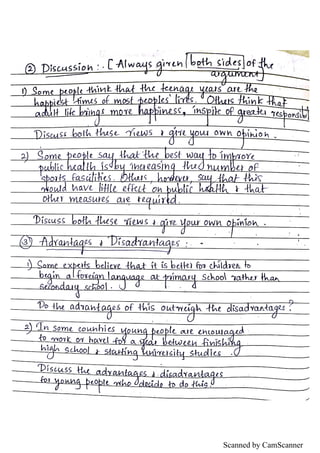 ② Discussion :- [Always given both sides of the
argument]
1) Some people think that the teenage years are the
happiest times of most peoples' lives. Others think that
adult life brings more happiness, inspite of greater responsib
Discuss both these views & give your own opinion.
2) Some people say that the best way to improve
public health is by increasing the number of
sports facilities. Others, however, say that this
would have little effect on public health & that
other measures are required.
Discuss both these views & give your own opinion.
③ Advantages & Disadvantages : -
1) Some experts believe that it is better for children to
begin a foreign language at primary school rather than
secondary school.
Do the advantages of this outweigh the disadvantages?
2) In some countries young people are encouraged
to work or travel for a year between finishing
high school & starting university studies.
Discuss the advantages & disadvantages
for young people who decide to do this.
Scanned by CamScanner